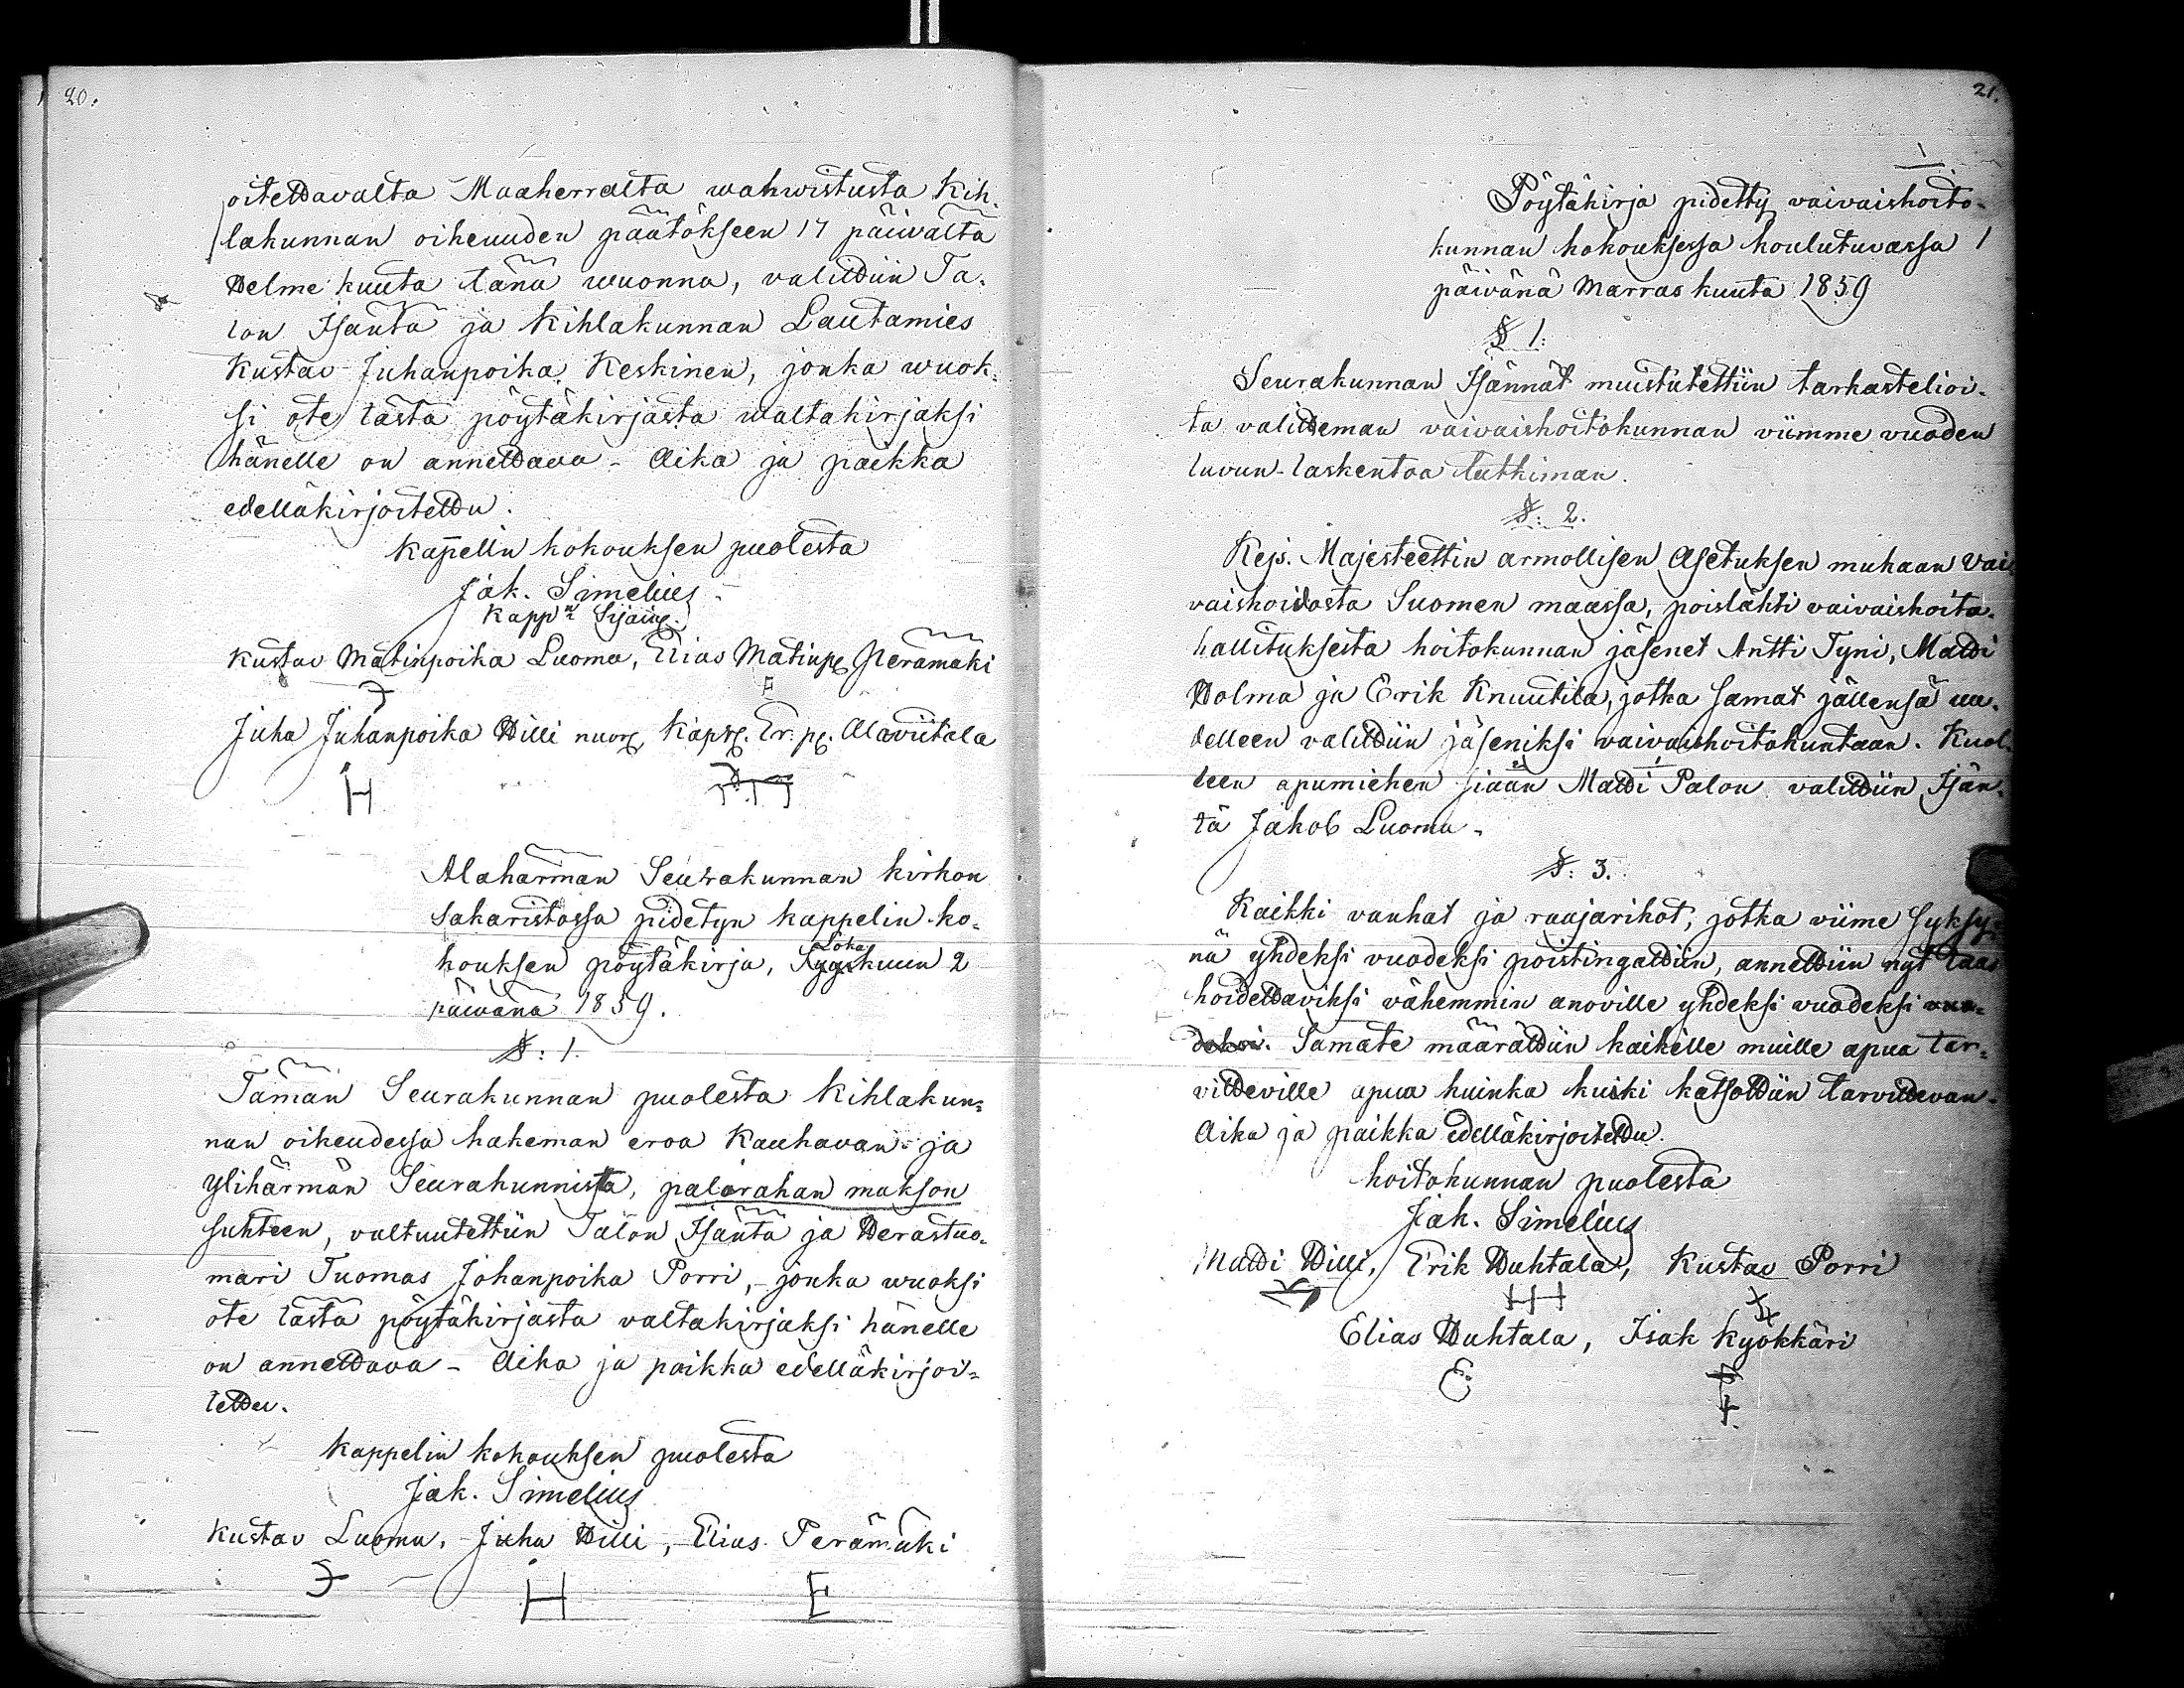 20.
oitettavalta Maaherralta wahwistusta Kih-
lakunnan oikeuuden päätökseen 17 päiwältä
Helme kuuta tänä wuonna, valittiin Ta-
lon Isäntä ja Kihlakunnan Lautamies
Kustav Juhanpoika Keskinen, jonka wuok-
si ote tästä pöytäkirjasta waltakirjaksi
hänelle on annettava - Aika ja paikka
edelläkirjoitettu.
Kapelin kokouksen puolesta
Jak. Simelius.
Kapp:n Sijain.
Kustav Matinpoika Luoma, Elias Matinp. Perämäki
Juha Juhanpoika Hilli nuor. Kaps. Er. p. Alaviitala
H
Alahärmän Seurakunnan kirkon
Sakaristossa pidetyn kappelin-ko-
kouksen pöytäkirja, Syyskuun 2
Loka
päiwänä 1859.
§: 1.
Tämän Seurakunnan puolesta Kihlakun-
nan oikeudessa hakeman eroa Kauhavan- ja
Ylihärmän Seurakunnista, palorahan makson
suhteen, valtuutettiin Talon Isäntä ja Herastuo-
mari Tuomas Johanpoika Porri, - jonka wuoksi
ote tästä pöytäkirjasta valtakirjaksi hänelle
on annettava - Aika ja paikka edelläkirjoi-
tettu.
Kappelin kokouksen puolesta
Jak. Simelius
Kustav Luoma. - Juha Hilli, Elias Perämäki
H E
21.
Pöytäkirja pidetty vaivaishoito-
kunnan kokouksessa koulutuvassa 1
päivänä Marras kuuta 1859
§ 1:
Seurakunnan Isännät muistutettiin tarkastelioi-
ta valitteman vaivaishoitokunnan viimme vuoden
luvun-laskentoa tutkiman.
§: 2.
Keis. Majesteettin armollisen Asetuksen mukaan Vai-
vaishoidosta Suomen maassa, poislähti vaivaishoito-
hallituksesta hoitokunnan jäsenet Antti Tyni, Matti
Holma ja Erik Knuutila, jotka samat jällensä uu-
delleen valittiin jäseniksi vaivaishoitokuntaan. Kuol-
leen apumiehen siaan Matti Palon valittiin Isän-
tä Jakob Luoma.
§: 3.
Kaikki vanhat ja raajarikot, jotka viime Syksy-
nä yhdeksi vuodeksi poistingattiin, annettiin nyt taas
hoidettaviksi vähemmin anoville yhdeksi vuodeksi vuo-
deksi. Samate määrättiin kaikille muille apua tar-
vitteville apua kuinka kuiki katsottiin tarvittevan.
Aika ja paikka edelläkirjoitettu.
hoitokunnan puolesta
Jak. Simelius
Matti Hilli, Erik Huhtala, Kustav Porri
Elias Huhtala, Isak Kyökkäri
E.